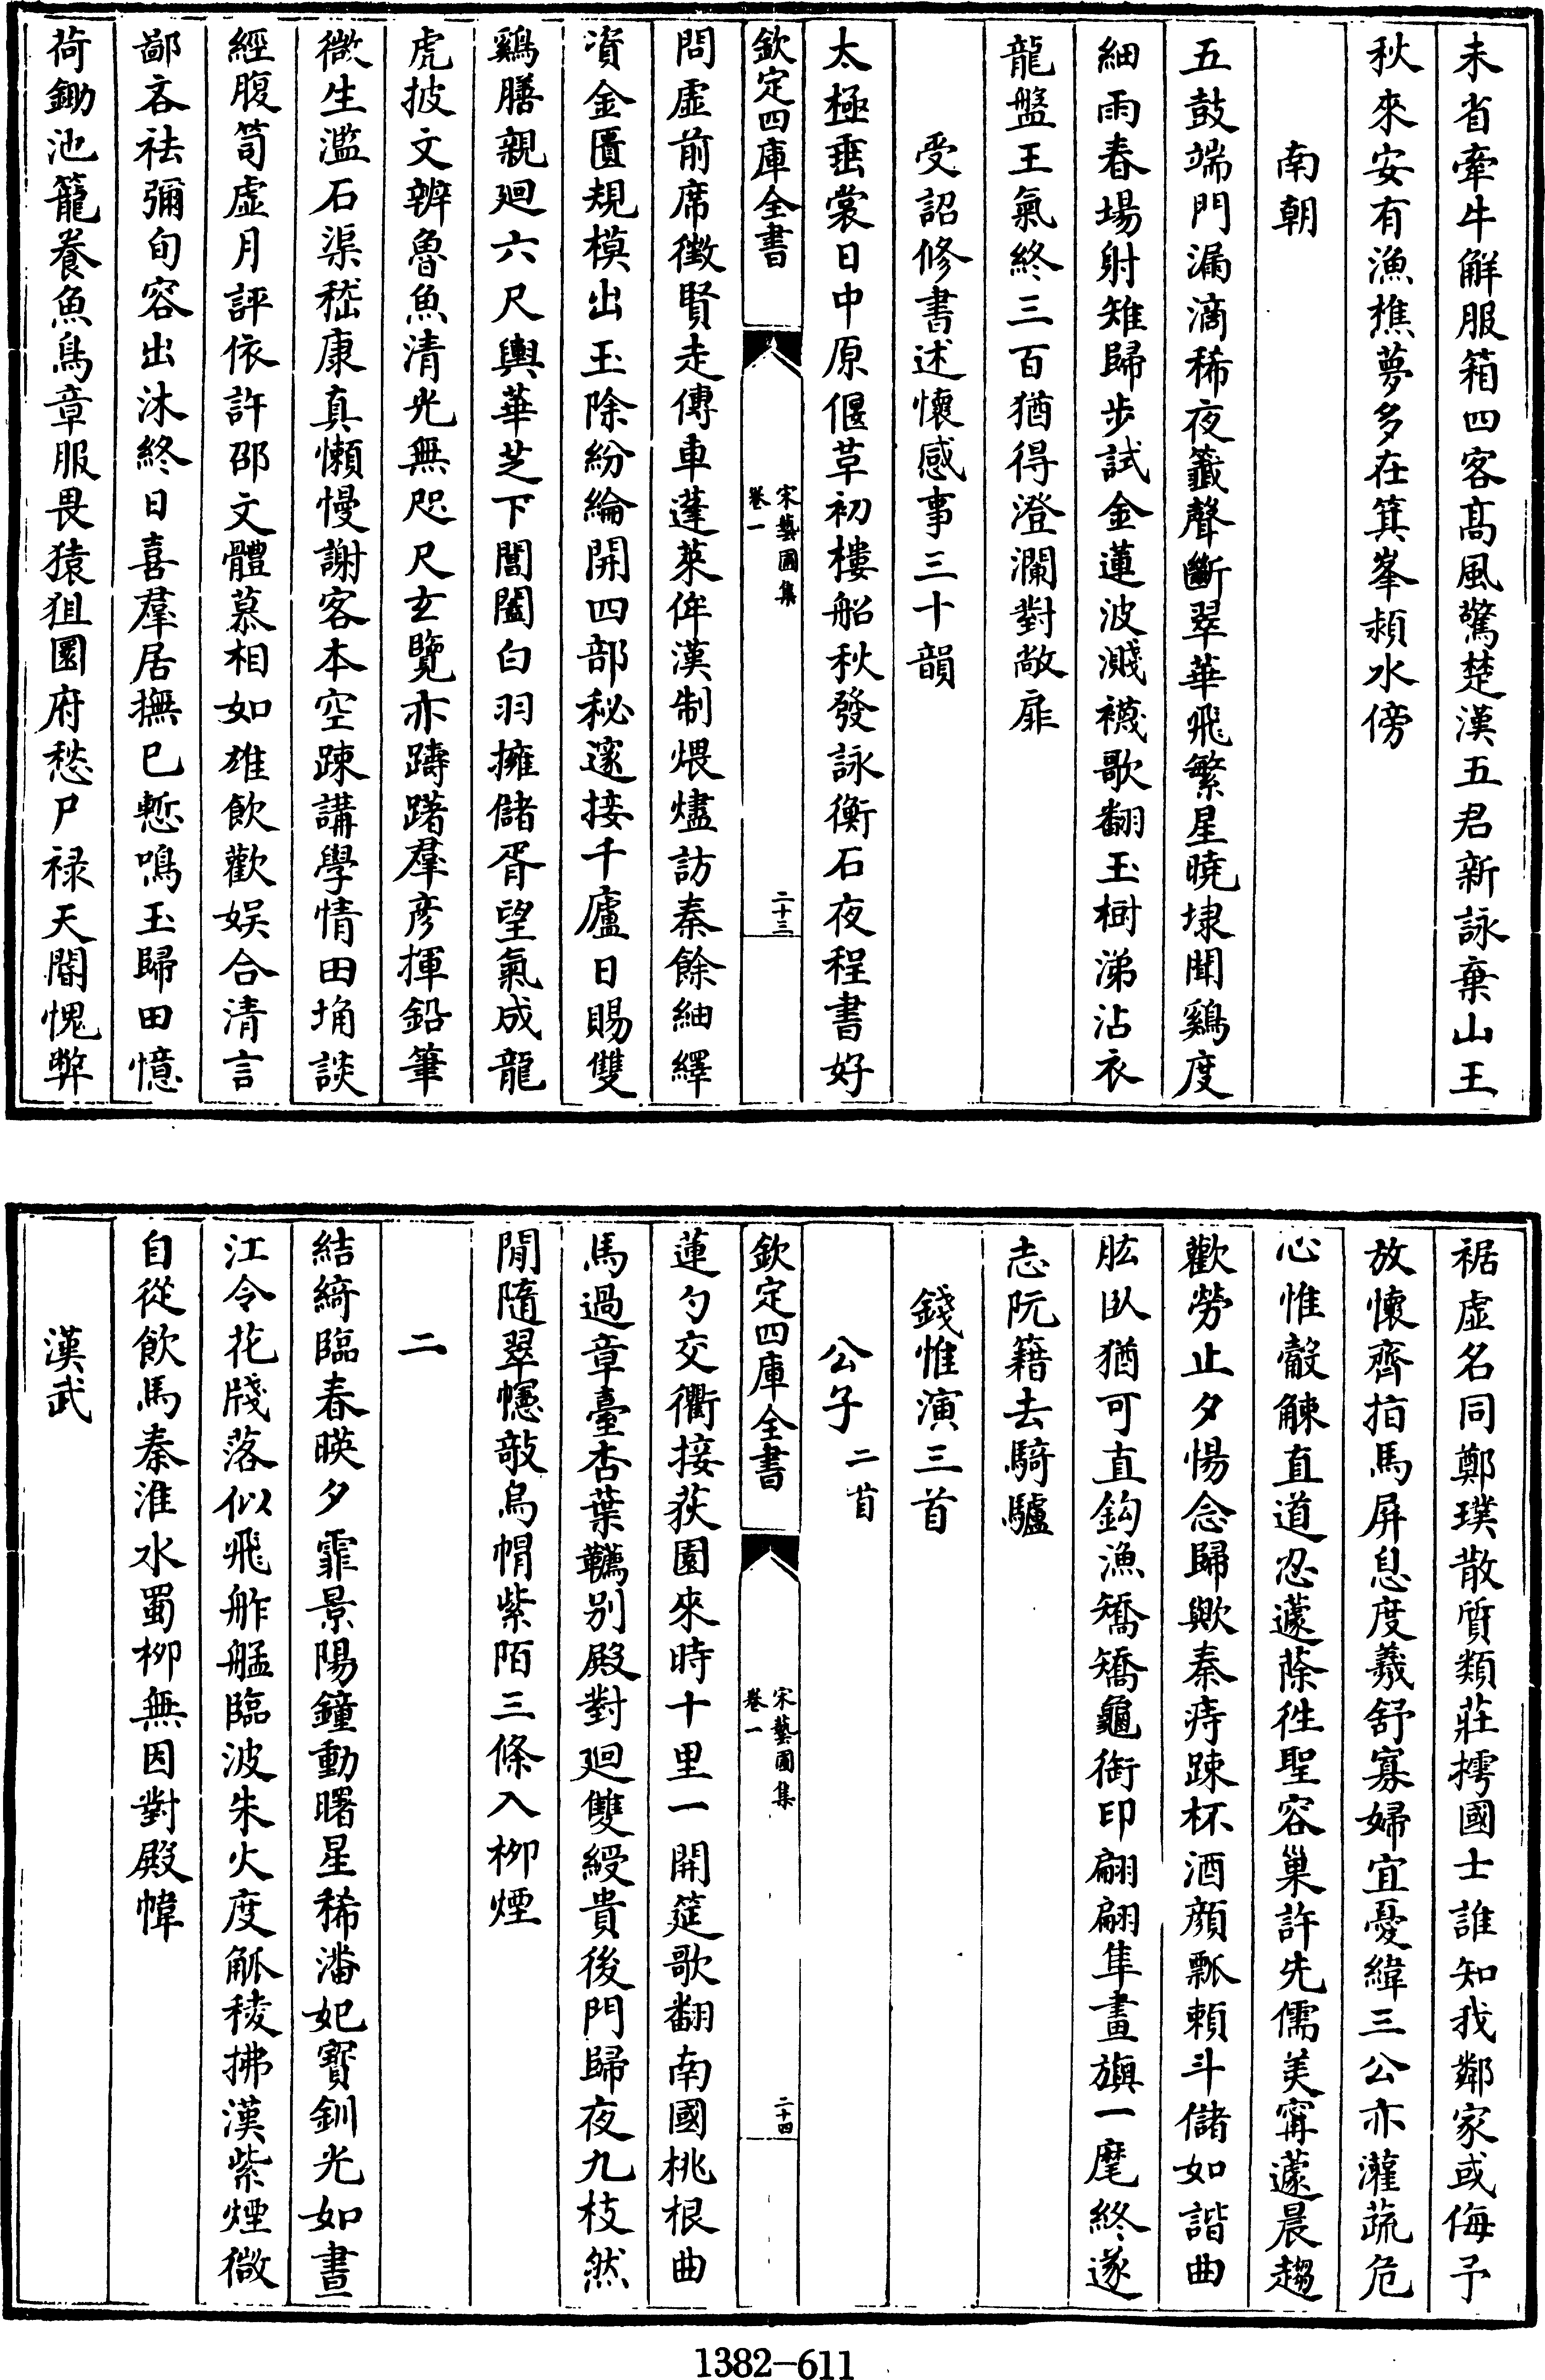 未省牽牛解服箱四客髙風驚楚漢五君新詠棄山王
秋來安有漁樵夢多在箕峯潁水傍
南朝
五鼓端門漏滴稀夜籤聲斷翠華飛繁星曉埭聞鷄度
細雨春場射雉歸步試金蓮波濺襪歌翻玉樹涕沾衣
龍盤王氣終三百猶得澄瀾對敞扉
受詔修書述懷感事三十韻
太極垂裳日中原偃草初樓船秋發詠衡石夜程書好
欽定四庫全書
宋藝圃集
卷一
二十三
問虛前席徵賢走傳車蓬萊侔漢制煨燼訪秦餘紬繹
資金匱規模出玉除紛綸開四部秘邃接千廬日賜雙
鷄膳親廻六尺輿華芝下閶闔白羽擁儲胥望氣成龍
虎披文辨魯魚清光無咫尺玄覽亦躊躇羣彦揮鉛筆
微生濫石渠嵇康真懶慢謝客本空踈講學情田埆談
經腹笥虛月評依許邵文體慕相如雄飲歡娱合清言
鄙吝祛彌旬容出沐終日喜羣居撫已慙鳴玉歸田憶
荷鋤池籠養魚鳥章服畏猿狙園府愁尸禄天閽愧弊
裾虛名同鄭璞散質類莊摴國士誰知我鄰家或侮予
放懷齊指馬屏息度羲舒寡婦宜憂緯三公亦灌蔬危
心惟觳觫直道忍蘧蒢徃聖容巢許先儒美甯蘧晨趨
歡勞止夕惕念歸歟秦痔踈杯酒顔瓢頼斗儲如諧曲
肱臥猶可直鈎漁矯矯龜銜印翩翩隼畫旟一麾終遂
志阮籍去騎驢
錢惟演三首
公子二首
欽定四庫全書
宋藝圃集
卷一
二十四
蓮勺交衢接荻園來時十里一開筵歌翻南國桃根曲
馬過章臺杏葉韉别殿對廻雙綬貴後門歸夜九枝然
閒隨翠幰敲烏帽紫陌三條入栁煙
二
結綺臨春暎夕霏景陽鐘動曙星稀潘妃寳釧光如晝
江令花牋落似飛舴艋臨波朱火度觚稜拂漢紫煙微
自從飲馬秦淮水蜀栁無因對殿幃
漢武
1382-611